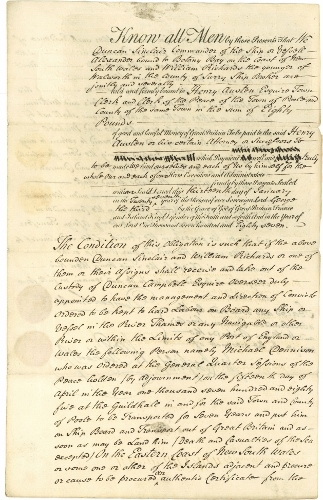 Know all Men by these Presents That We
Duncan Sinclair Commander of the Ship or Vessell
Alexander bound to Botany Bay on the Coast of New
South Wales and William Richards the younger of
Walworth in the County of Surry Ship Broker are
jointly and severally
held and firmly bound to Henry Austen Esquire Town
Clerk and Clerk of the Peace of the Town of Poole and
County of the same Town in the Sum of Eighty
Pounds
of good and lawful Money of Great Britain To be paid to the said Henry
Austen or his certain Attorney
to be made We bind ourselves and each of us by himself for the
whole our and each of our Heirs Executors and Administrators
firmly by these Presents Sealed
with our Seals dated this thirteenth day of January
in the Twenty Year of the Reign of our Sovereign Lord George
the third by the Grace of God of Great Britain France
and Ireland King Defender of the Faith and so forth and in the Year of
our Lord One Thousand Seven Hundred and Eighty Seven
The Condition of this Obligation is such that if the above
bounden Duncan Sinclair and William Richards or one of
them or their Assigns shall receive and take out of the
Custody of Duncan Campbell Esquire Overseer duly
appointed to have the management and direction of Convicts
ordered to be kept to hard Labour on Board any Ship or
Vessel in the River Thames or any Navigable or other
River or within the Limits of any Port of England or
Wales the following Person namely Michael Dennison
who was ordered at the General Quarter Sessions of the
Peace holden (by adjournment) on the fifteenth day of
April in the Year one thousand seven hundred and eighty
five at the Guildhall in and for the said Town and County
of Poole to be Transported for Seven Years and put him
on Ship Board and Transport out of Great Britain and as
soon as may be Land him (Death and Casualties of the Sea
excepted) On the Eastern Coast of New South Wales
or some one or other of the Islands adjacent and procure
or cause to be procured an authentic Certificate from the